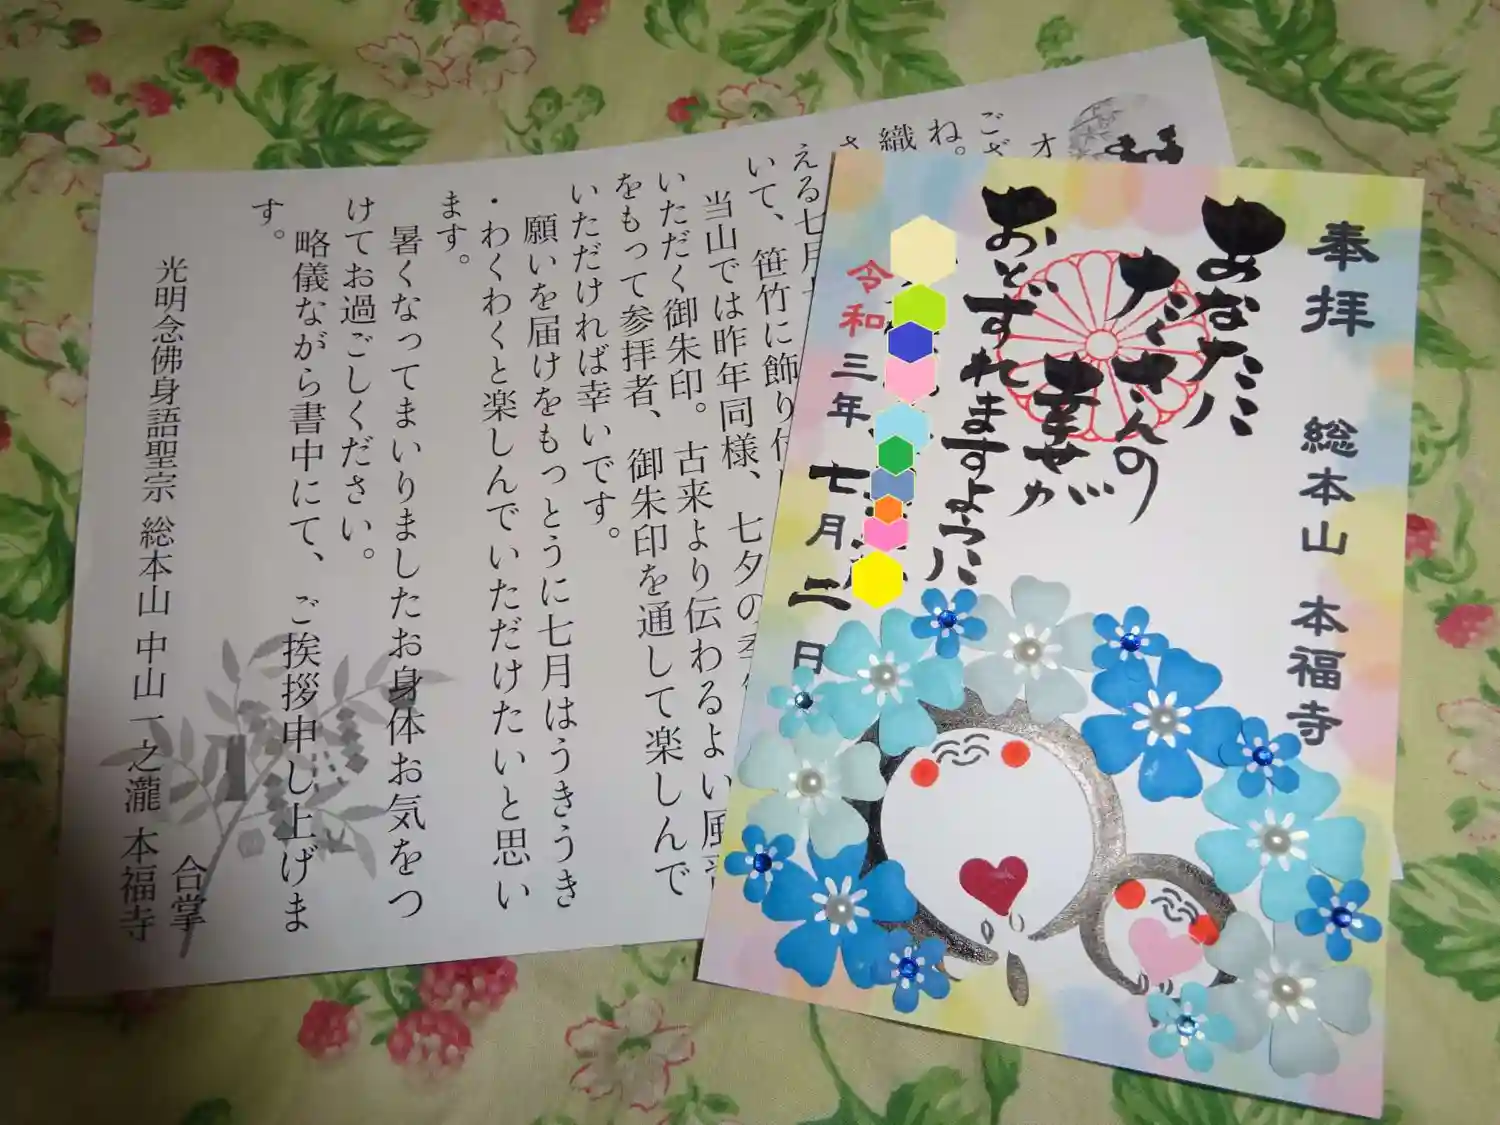 奉拝
総本山 本福寺
あなたに
たくさんの
幸せが
おとずれますように
令和三年七月二日
オ
ござ
ね。
織
さ
える七月
いて、笹竹に飾り
当山では昨年同様、七夕の
いただく御朱印。古来より伝わるよい風
をもって参拝者、御朱印を通して楽しんで
いただければ幸いです。
願いを届けをもっとうに七月はうきうき
・わくわくと楽しんでいただけたいと思い
ます。
暑くなってまいりましたお身体お気をつ
けてお過ごしください。
略儀ながら書中にて、ご挨拶申し上げま
す。
合掌
光明念佛身語聖宗 総本山 中山一之瀧 本福寺